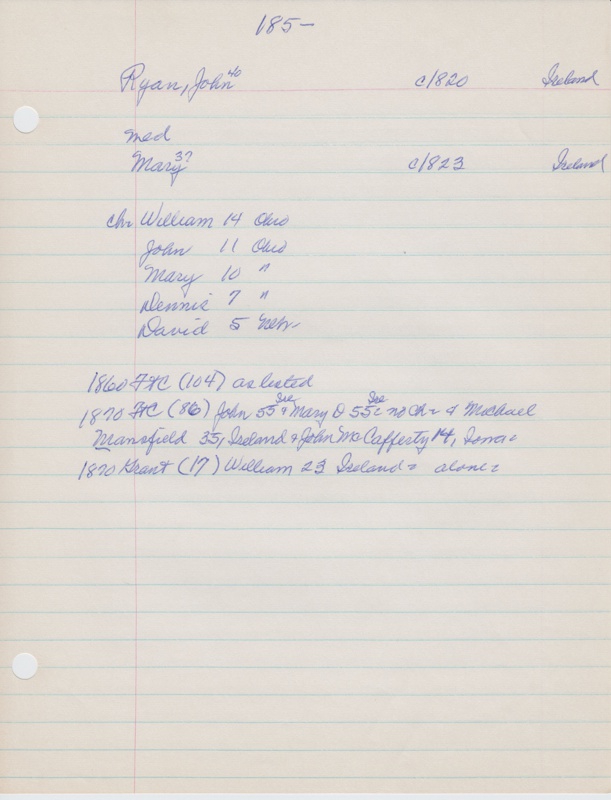 185-
Ryan, John 40 c1820 Ireland
med
Mary 37 c1823 Ireland
ch- William 14 Ohio
John 11 Ohio
Mary 10 "
Dennis 7 "
David 5 Nebr
1860 FtC (104) as listed
1870 FtC (86) John 55 Ire & Mary D 55 Ire no ch- & Michael
Mansfield 35, Ireland & John McCafferty 14, Iowa-
1870 Grant (17) William 23 Ireland- alone-